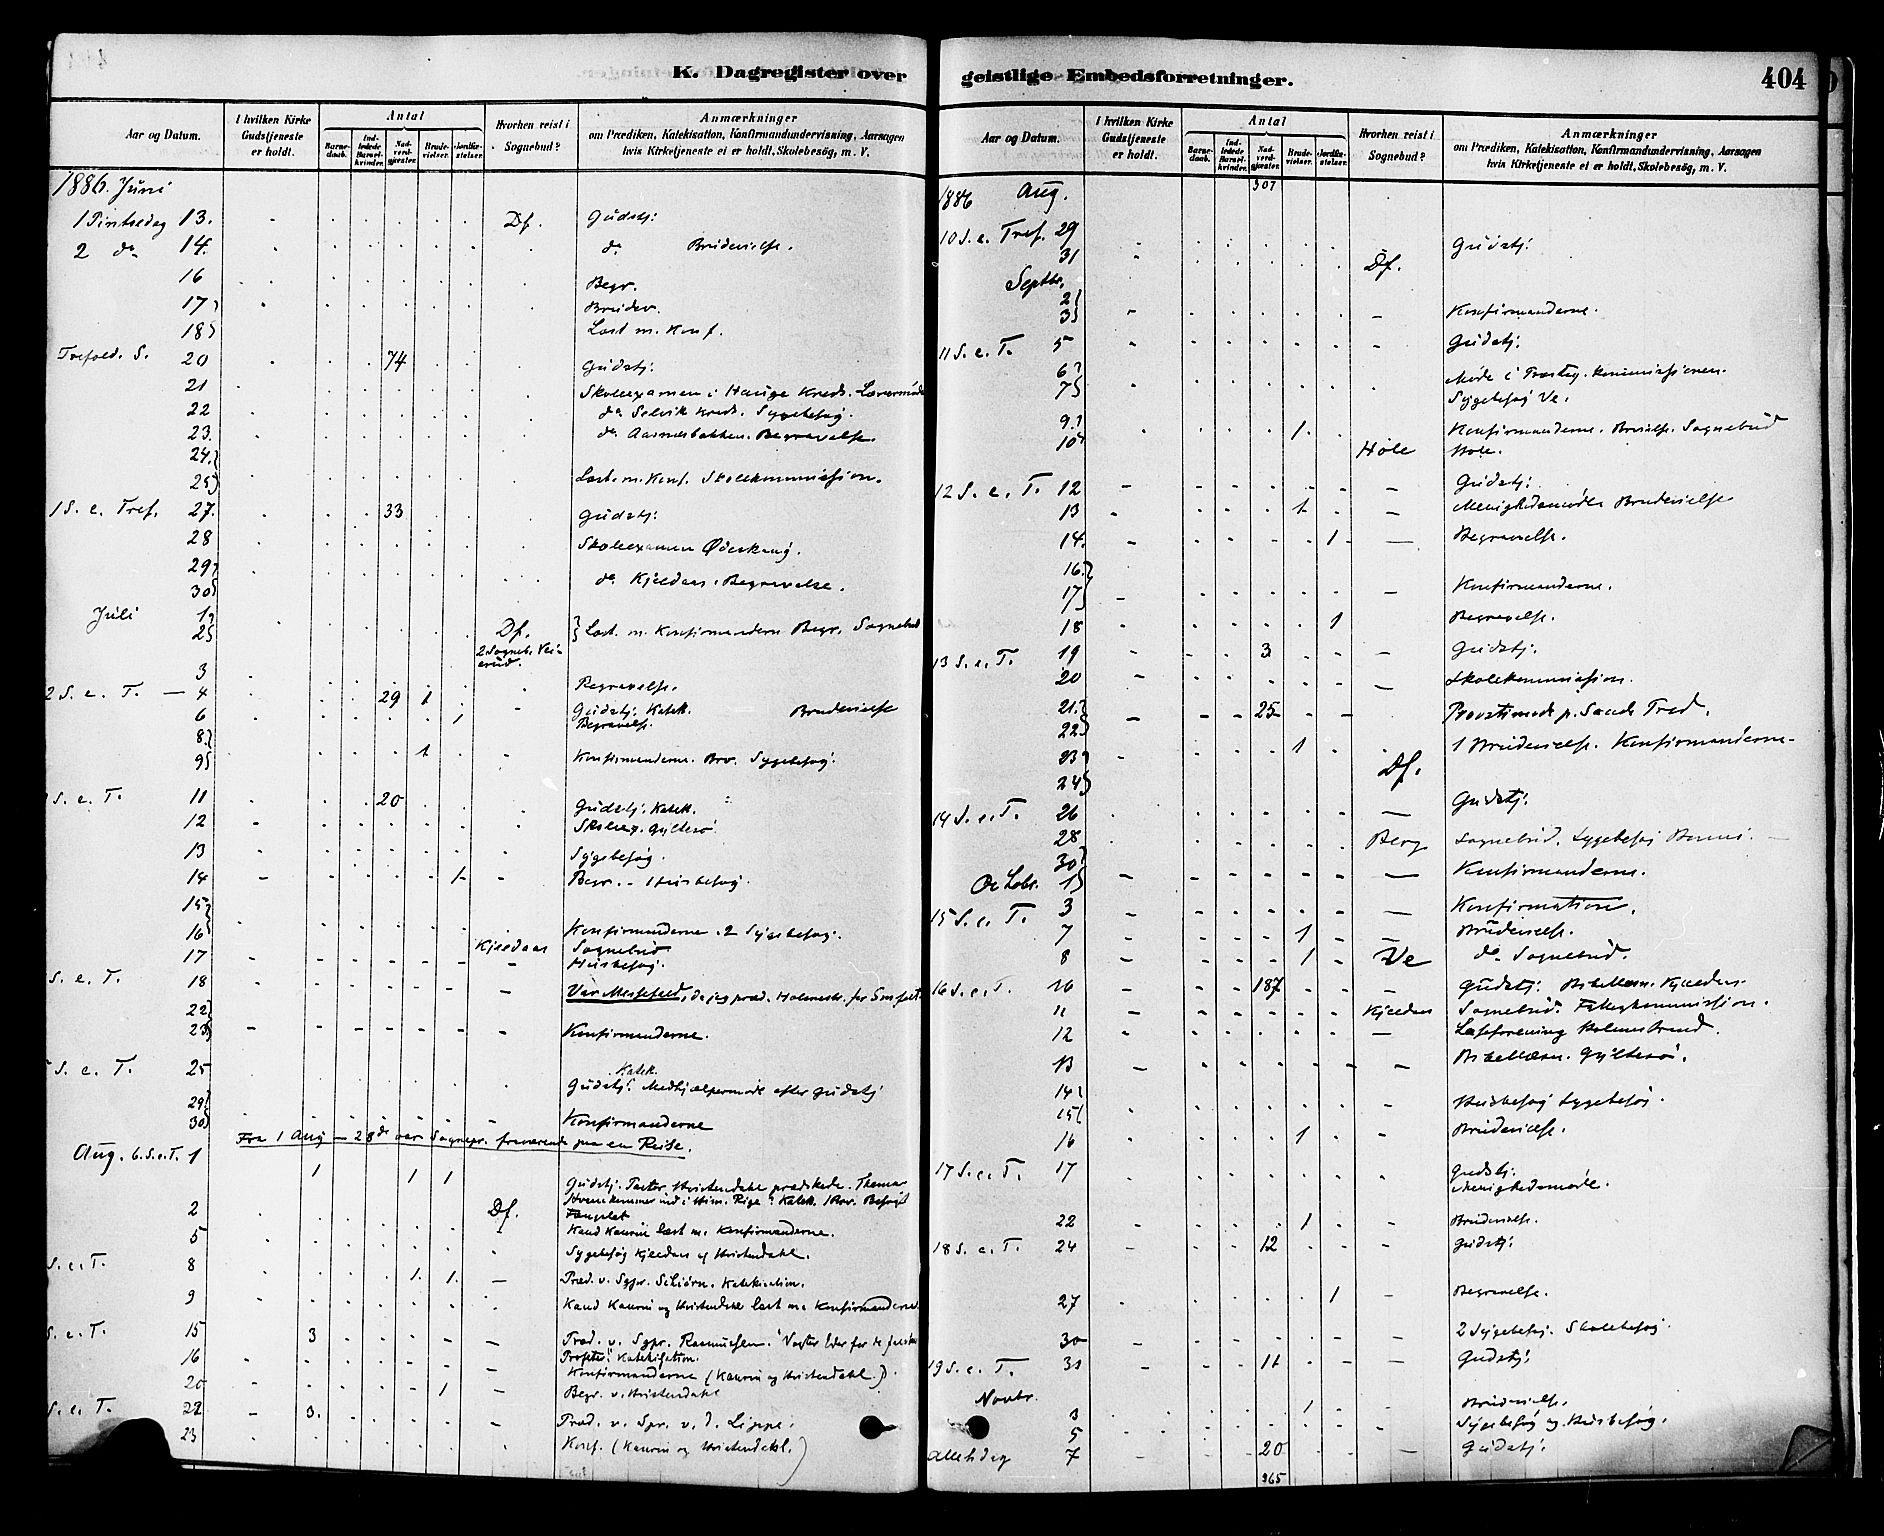 K. Dagregister over
Aar og Datum.
I hvilken Kirke Gudstjeneste er holdt.
Antal
Barnedaab.
Indledede Barselkvinder.
Nadverdgjæster.
Brudevielser.
Jordfæstelser.
Hvorhen reist i Sognebud?
Anmærkninger
om Prædiken, Katekisation, Konfirmandundervisning, Aarsagen
hvis Kirketjeneste ei er holdt, Skolebesög, m. V.
1886. Juni
1 Pintsedag 13. Df. Gudstj:
2 do 14. do Brudevielse.
16 Begr.
17 Brudev.
18 Læst m. Konf.
Trefold. S. 20 74 Gudstj:
21 Skoleexamen i Hauge Kreds. Lærermöde
22 do Selvik Kreds. Sygebesög.
23. do Aasnesbakken. Begravelse.
24.
25 Læst. m. Konf. Skolekommission.
1 S. e. Tref. 27. 33 Gudstj:
28 Skoleexamen Ödeskaug.
29
30 do Kjeldaas. Begravelse.
Juli 1
2 Df. Læst. m. Konfirmandern Begr. Sognebud
2 Sogneb.
3 Begravelse.
2 S. e. T. — 4 29 1 Gudstj: Katek. Brudevielse
6 1 Begravelse.
8
9 1 Konfirmanderne. Brv. Sygebesög.
S. e. T. 11 20 Gudstj. Katek.
12 Skoleex. Gyltesö
13 Sygebesög.
14 1 Begr. - Husbesög.
15
16 Konfirmanderne. 2 Sygebesög.
17 Kjeldaas Sognebud Husbesög.
S. e. T. 18 Var Messefald, da jeg præd. Holmestr. for
22
23 Konfirmanderne.
S. e. T. 25 Gudstj: Katek. Medhjælpermöde efter Gudstj
29
30 Konfirmanderne
Fra 1 Aug — 28de var Sognepr. fraværende paa en Reise.
Aug. 6. S. e. T. 1 1 1 1 Gudstj. Pastor Kristendahl prædikede. Thema:
Hvem kommer ind i Him. Rige? Katek. 1 Brv. Besögt
2 Df. Fængslet
Kand Kaurin læst m. Konfirmanderne.
5 Sygebesög Kjeldaas af Kristendahl.
S. e. T. 8 1. 1. Præd. v. Sgpr. Schiörn. Katekisation.
9 Kand Kaurin og Kristendahl læst m. Konfirmanderne
S. e. T. 15 3 Præd. v. Sgpr. Rasmussen. "Vogter Eder for de falske
Profeter." Katekisation.
16 Konfirmanderne (Kaurin og Kristendahl).
20 1 Begr. v. Kristendahl
S. e. T. 22 3. Præd. v. Spr. v. d. Lippe.
23 Konf. (Kaurin og Kristendahl.)
geistlige Embedsforretninger.
404
Aar og Datum.
I hvilken Kirke Gudstjeneste er holdt.
Antal
Barnedaab.
Indledede Barselkvinder.
Nadverdgjæster.
Brudevielser.
Jordfæstelser.
Hvorhen reist i Sognebud?
Anmærkninger
om Prædiken, Katekisation, Konfirmandundervisning, Aarsagen
hvis Kirketjeneste ei er holdt, Skolebesög, m. V.
1886 Aug. 307
10 S. e. Tref. 29 Gudstj:
31 Df.
Septbr.
2
3 Konfirmanderne.
11 S. e. T. 5 Gudstj:
6
7 Möde i
Sygebesög Ve.
9.
10 1. Höle Konfirmanderne. Sognebud
Höle.
12 S. e. T. 12 Gudstj:
13 1 Menighedsmöde Brudevielse
14. 1 Begravelse.
16.
17 Konfirmanderne.
18 1 Begravelse.
13 S. e. T. 19 3 Gudstj.
20 Skolekommission.
21.
22 25 Provstimöde p. Sande Præd.
23
24 1 Df. 1 Brudevielse. Konfirmanderne
14 S. e. T. 26 Gudstj:
28 Berg Sognebud. Sygebesög
30
Octobr. 1 Konfirmanderne.
15 S. e. T. 3 Konfirmation.
7 1 Brudevielse.
8 1 Ve do Sognebud.
16 S. e. T. 10 187 Gudstj: Bibellæsn. Kjeldaas.
11 Kjeldaas Sognebud. Fattigkommission.
12 Læseforening Holmestrand.
13 Bibellæsn. Gyltesö.
14
15 Husbesög Sygebesög.
16 1 Brudevielse.
17 S. e. T. 17 Gudstj:
Menighedsmöde.
22 1 Brudevielse.
18 S. e. T. 24 12 Gudstj:
27 1 Begravelse.
30 2 Sygebesög. Skolebesög.
19 S. e. T. 31 11 Gudstj:
Novbr.
3 1 Brudevielse.
5 Sygebesög og Husbesög.
Allehdag 7 20 Gudstj:
965